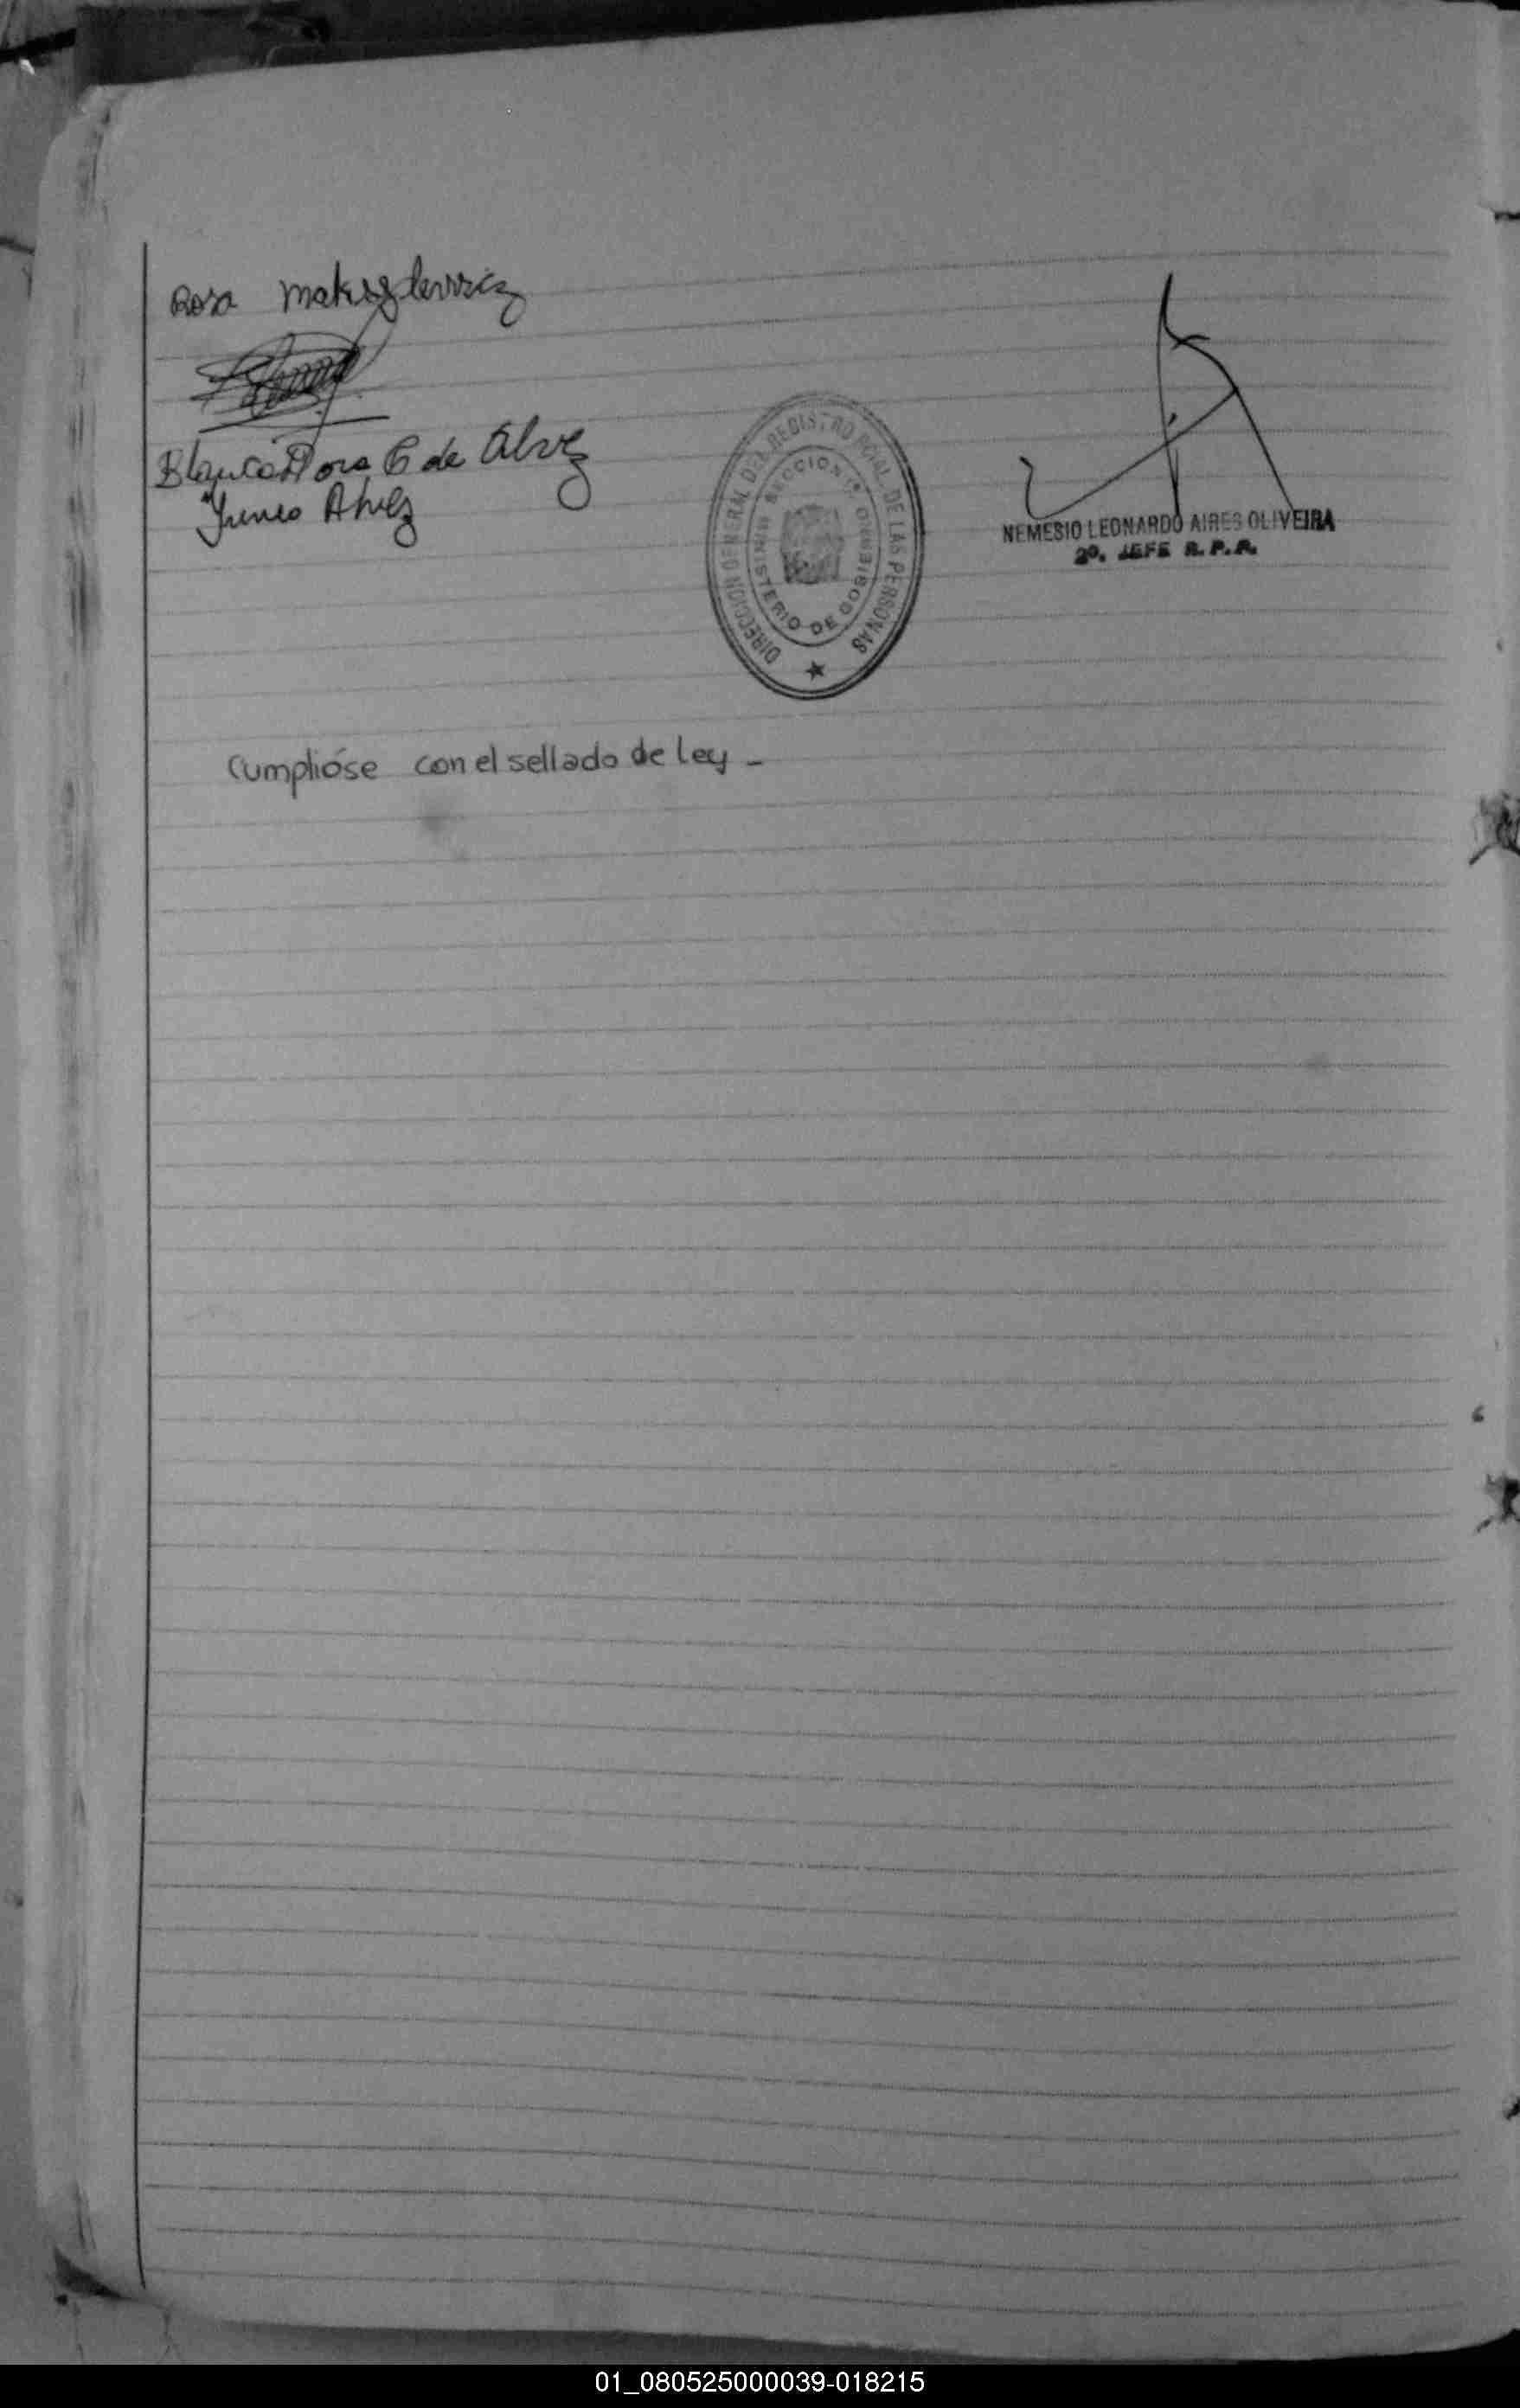 Rosa
Blanca Dora G de Alvez
Alvez
DIRECCION GENERAL DEL REGISTRO PCIAL. DE LAS PERSONAS
SECCION 1ª
MINISTERIO DE GOBIERNO
NEMESIO LEONARDO AIRES OLIVEIRA
2º. JEFE R.P.P.
Cumplióse con el sellado de Ley -
01_080525000039-018215